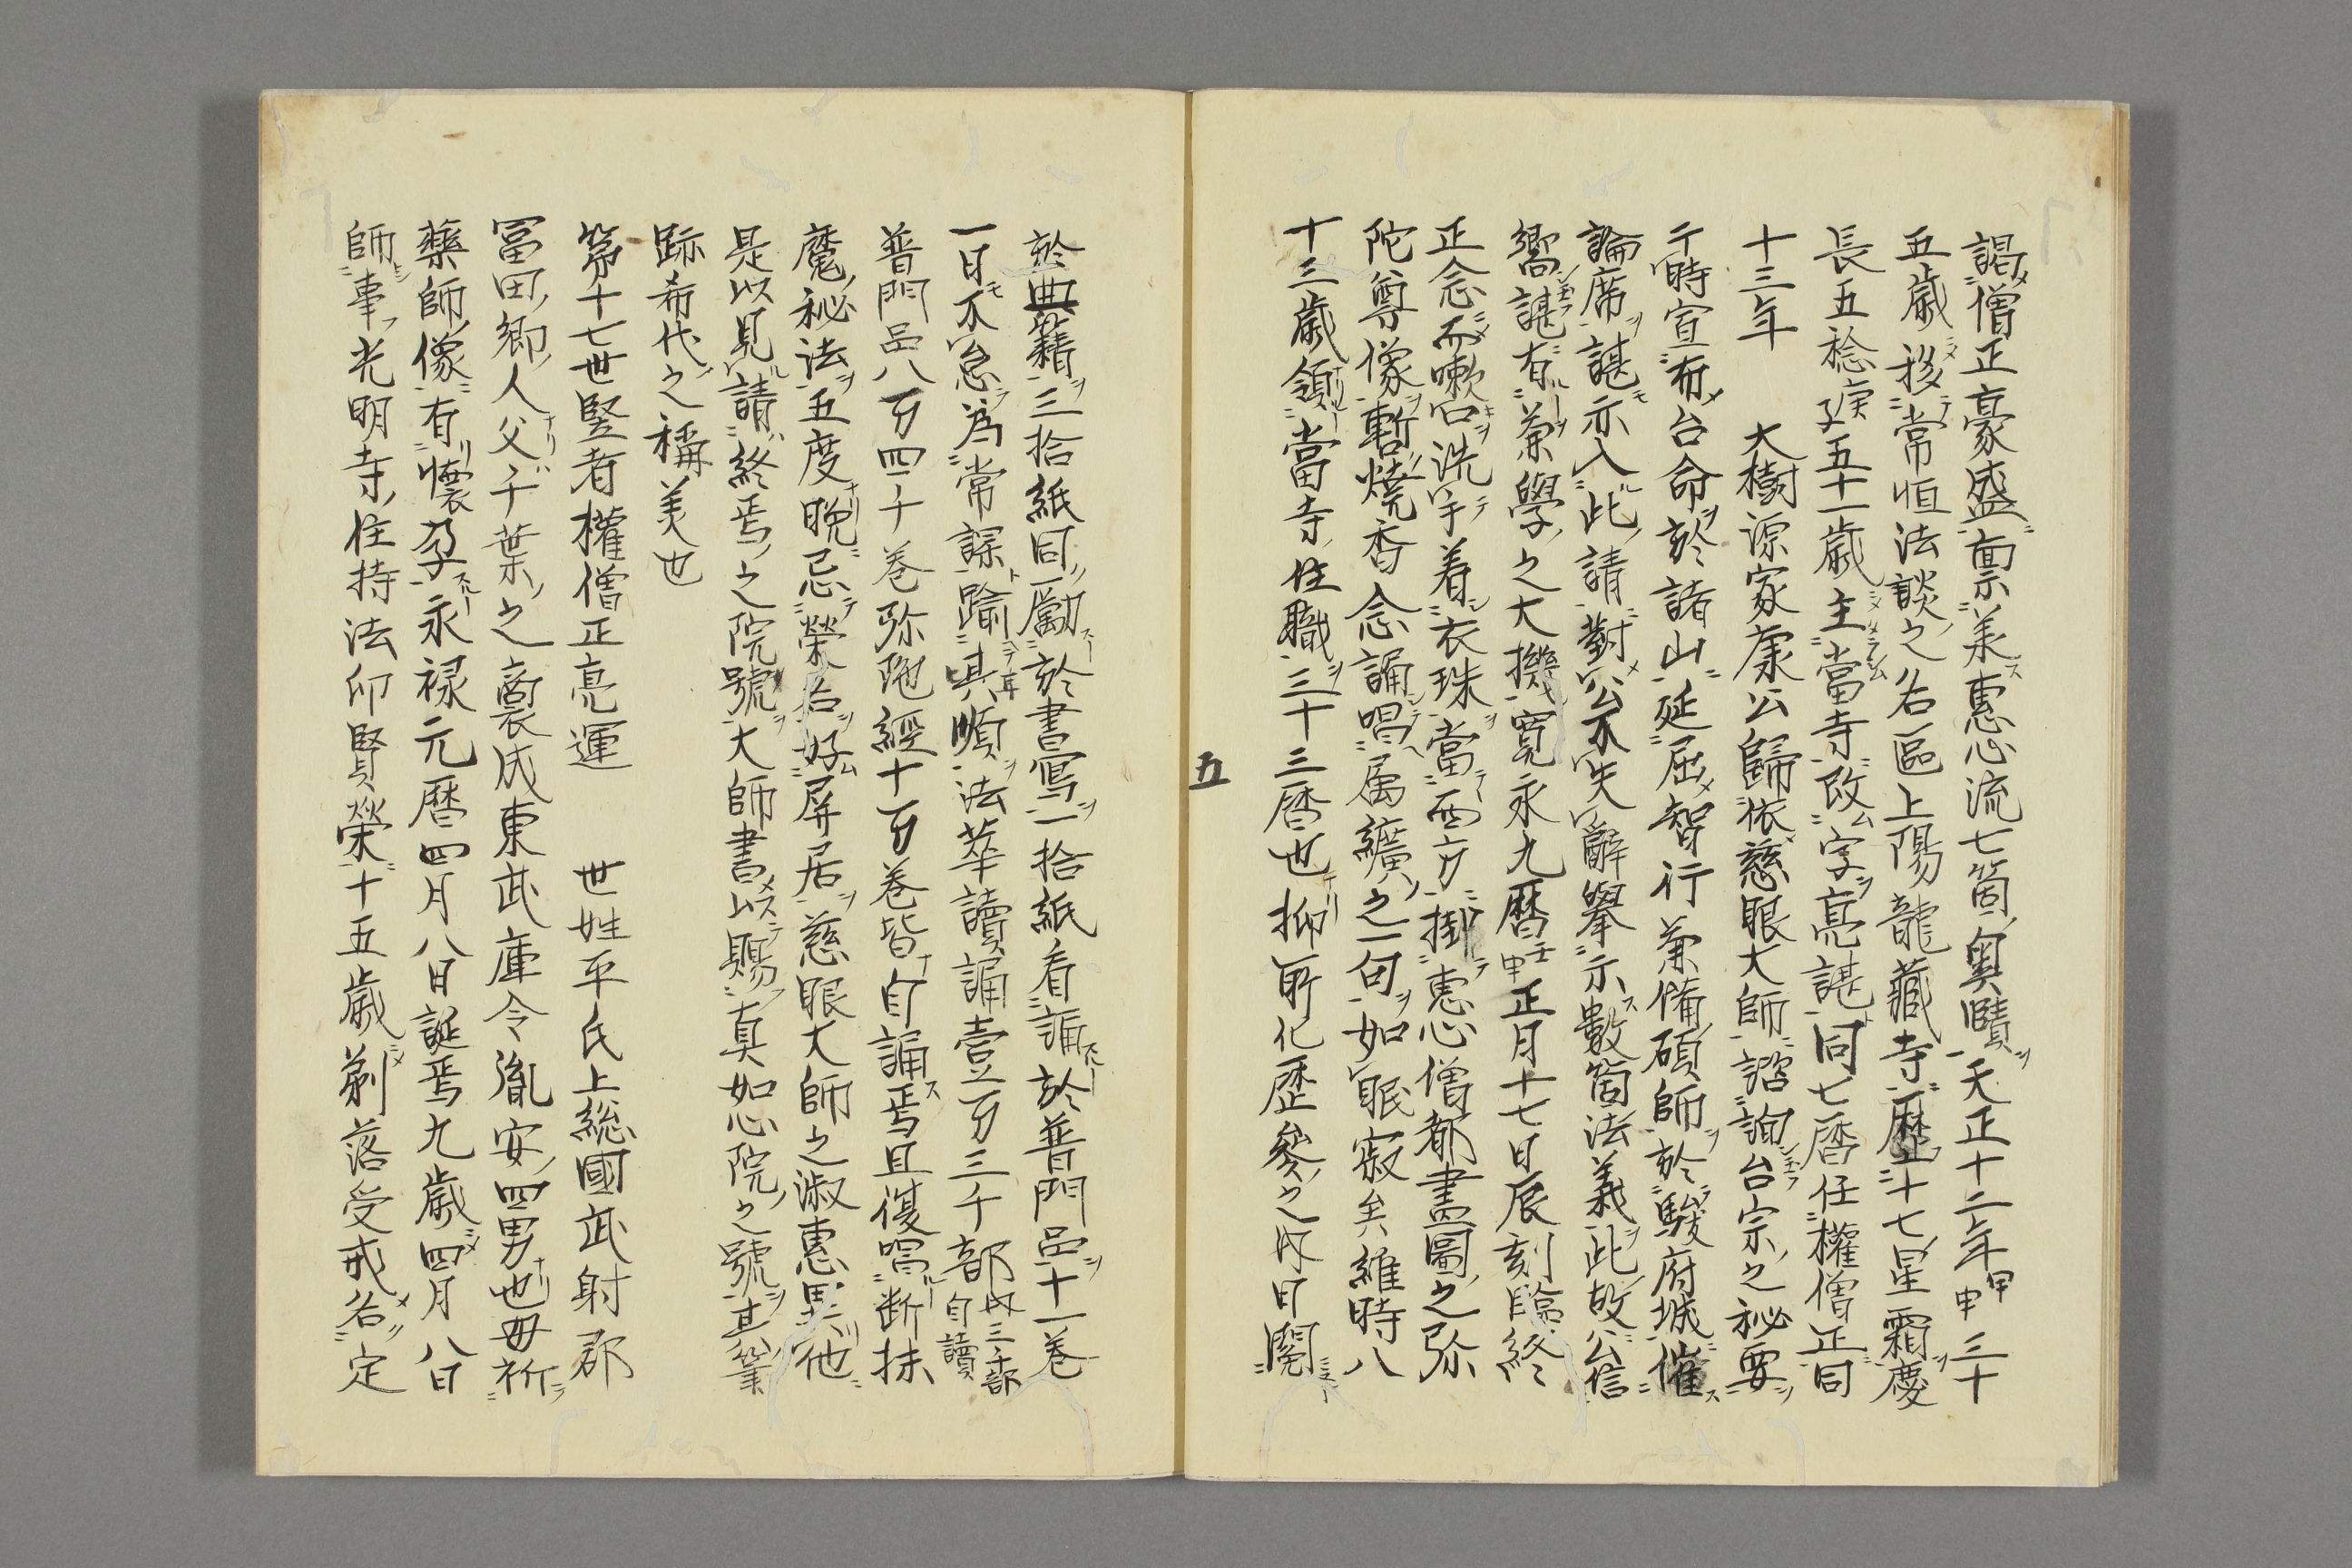 謁僧正豪盛禀羕惠心流七箇奥賾天正十二年甲申三十
五歳移常恒法談之名區上陽龍藏寺歴十七星霜慶
長五稔庚子五十一歳主當寺改字亮諶同七暦任權僧正同
十三年　大樹源家康公歸依慈眼大師諮詢台宗之秘要
于時宣布台命於諸山延屈智行兼備碩師於駿府城催
論席諶亦入此請對公不失辭擧示數箇法義此故公信
嚮諶有兼學之大機寛永九暦壬申正月十七日辰刻臨終
正念而嗽口洗手着衣珠當西方掛惠心僧都畫圖之弥
陀尊像暫燒香念誦唱属纊之一句如眠寂矣維時八
十三歳領當寺住職三十三暦也抑所化歴參之內日閲
五
於典籍三拾紙同勵於書寫一拾紙看誦於普門品十一巻
一日不怠為常課踰其順法華讀誦壹万三千部內三千部自讀
普門品八万四千巻弥陁經十万巻皆自誦焉且復唱断抹
魔秘法五度晩忌榮名好屏居慈眼大師之淑惠異他
是以見請終焉之院號大師書以賜真如心院之號其筆
跡希代之稱美也
第十七世竪者權僧正亮運　世姓平氏上総國武射郡
冨田郷人父千葉之裔成東武庫令胤安四男也母祈
藥師像有懐孕永禄元暦四月八日誕焉九歳四月八日
師事光明寺住持法印賢榮十五歳剃落受戒名定